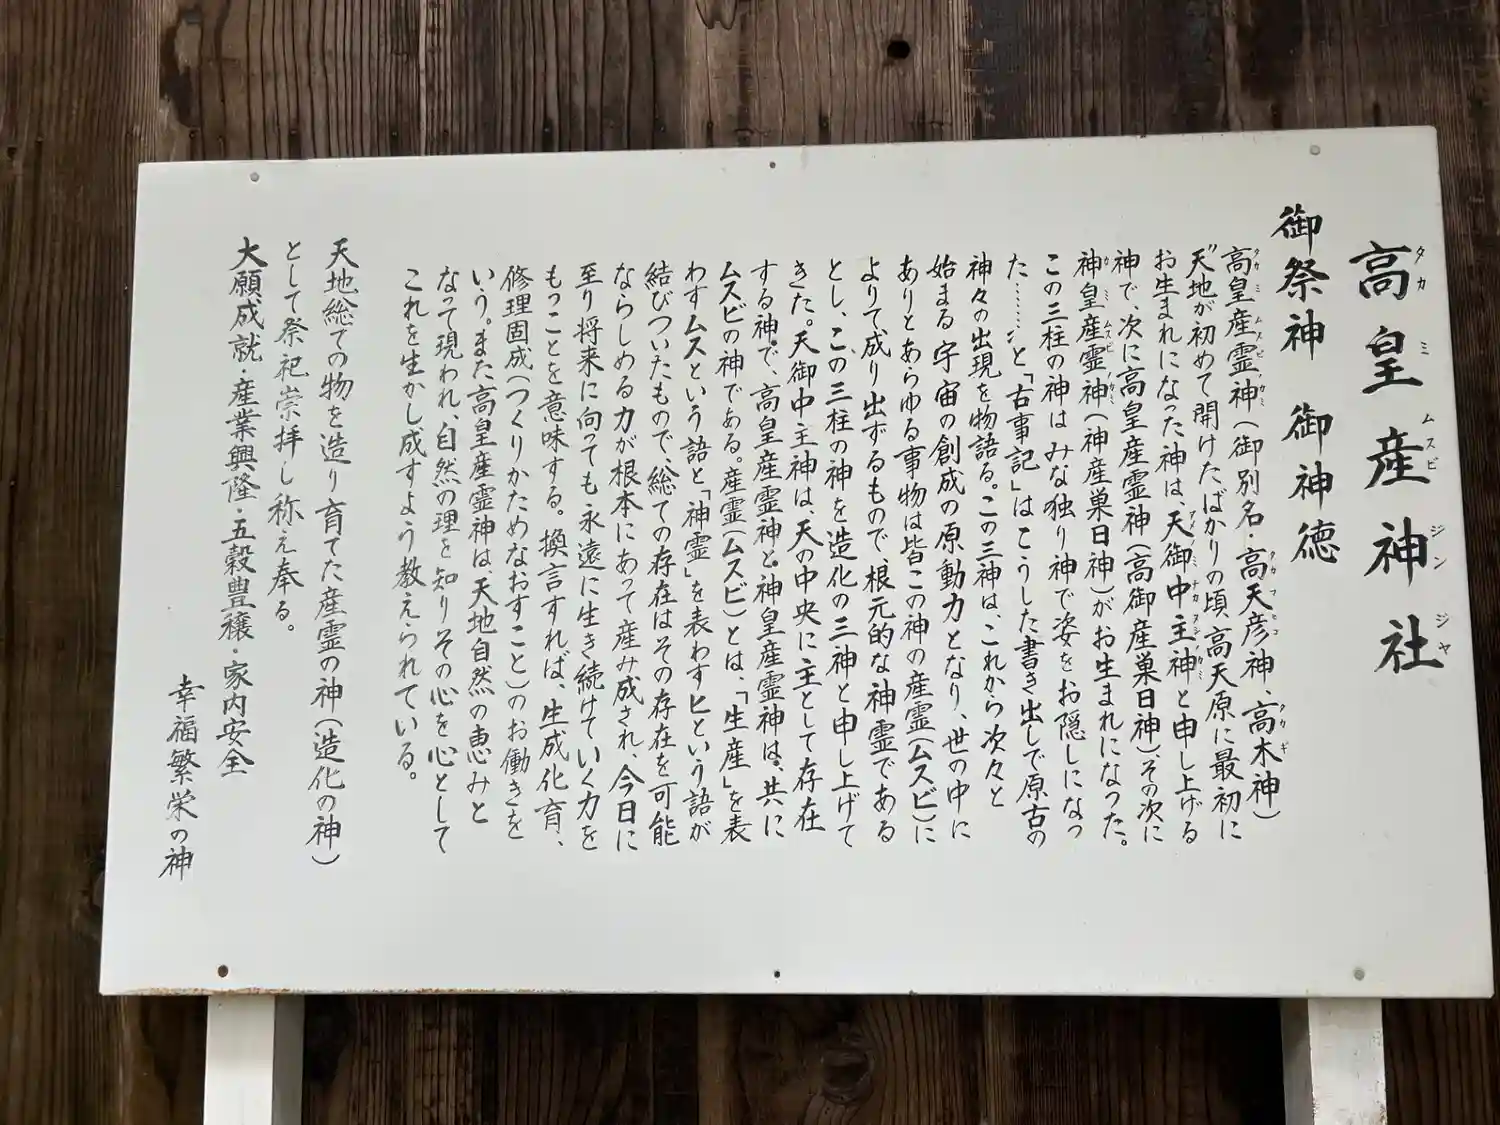 高皇産神社
御祭神 御神徳
高皇産霊神(御別名・高天彦神、高木神)
〝天地が初めて開けたばかりの頃高天原に最初に
お生まれになった神は、天御中主神と申し上げる
神で、次に高皇産霊神(高御産巣日神)その次に
神皇産霊神(神産巣日神)がお生まれになった。
この三柱の神はみな独り神で姿をお隠しになっ
た……〟と「古事記」はこうした書き出しで原古の
神々の出現を物語る。この三神は、これから次々と
始まる宇宙の創成の原動力となり、世の中に
ありとあらゆる事物は皆この神の産霊(ムスビ)に
よりて成り出ずるもので、根元的な神霊である
とし、この三柱の神を造化の三神と申し上げて
きた。天御中主神は、天の中央に主として存在
する神で、高皇産霊神と神皇産霊神は、共に
ムスビの神である。産霊(ムスビ)とは、「生産」を表
わすムスという語と「神霊」を表わすヒという語が
結びついたもので、総ての存在はその存在を可能
ならしめる力が根本にあって産み成され、今日に
至り将来に向っても永遠に生き続けていく力を
もつことを意味する。換言すれば、生成化育、
修理固成(つくりかためなおすこと)のお働きを
いう。また高皇産霊神は、天地自然の恵みと
なって現われ、自然の理を知りその心を心として
これを生かし成すよう教えられている。
天地総ての物を造り育てた産霊の神(造化の神)
として祭祀崇拝し称え奉る。
大願成就・産業興隆・五穀豊穣・家内安全
幸福繁栄の神